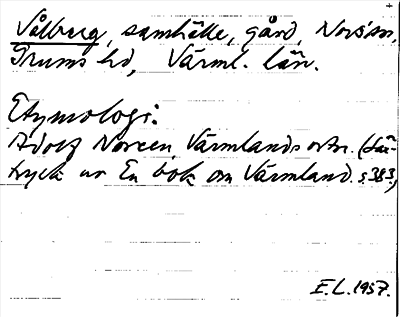 Vålberg, samhälle, gård, Nors sn,
Grums hd, Värml. län.
Etymologi:
Adolf Noreen, Värmlands ortn. (Sär-
tryck ur En bok om Värmland. s. 383.)
E.L. 1957.